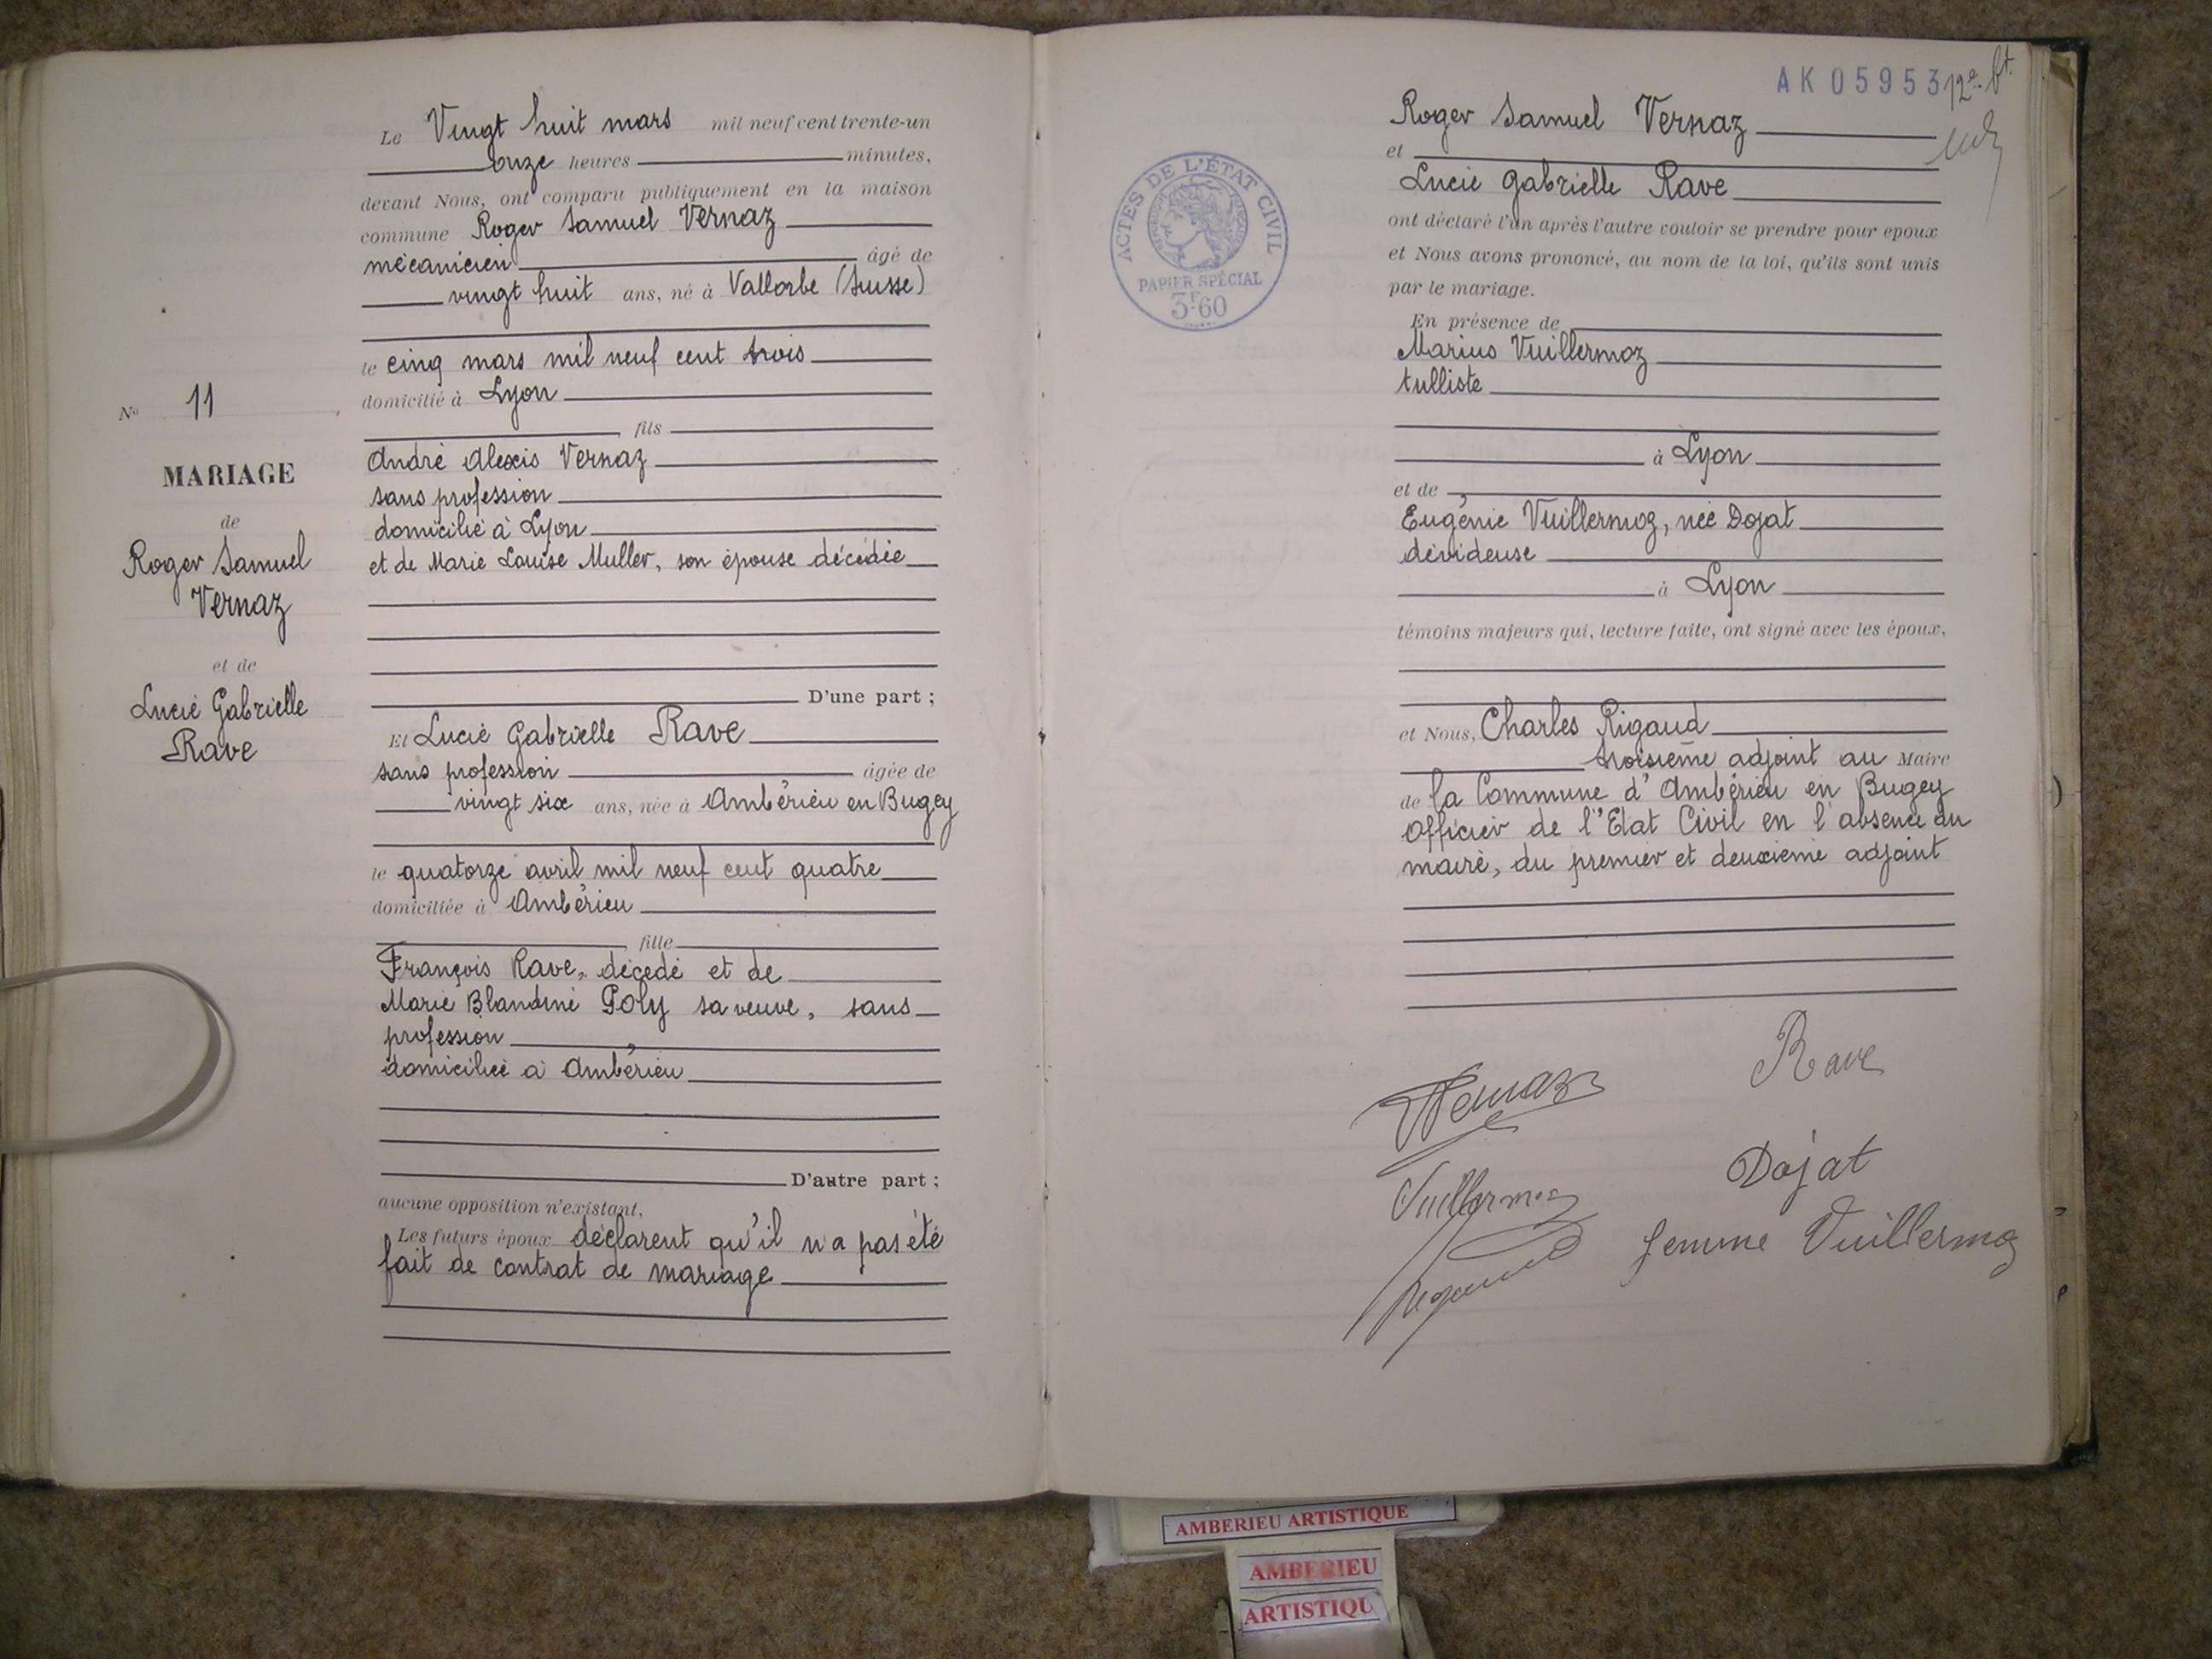 Le Vingt huit mars mil neuf cent trente-un
onze heures minutes,
devant Nous, ont comparu publiquement en la maison
commune Roger Samuel Vernaz
mécanicien âgé de
vingt huit ans, né à Vallorbe (Suisse)
le cinq mars mil neuf cent trois
domicilié à Lyon
fils
André Alexis Vernaz
sans profession
domicilié à Lyon
et de Marie Louise Muller, son épouse décédée
D'une part ;
Nº 11
MARIAGE
de
Roger Samuel
Vernaz
et de
Lucie Gabrielle
Rave
Et Lucie Gabrielle Rave
sans profession âgée de
vingt six ans, née à Ambérieu en Bugey
le quatorze avril mil neuf cent quatre
domiciliée à Ambérieu
fille
François Rave, décédé et de
Marie Blandine Poly sa veuve, sans
profession
domiciliée à Ambérieu
D'autre part ;
aucune opposition n'existant,
Les futurs époux déclarent qu'il n'a pas été
fait de contrat de mariage
AK 05953 12e bt
ACTES DE L'ÉTAT CIVIL
PAPIER SPÉCIAL
3F60
Roger Samuel Vernaz
et
Lucie Gabrielle Rave
ont déclaré l'un après l'autre vouloir se prendre pour époux
et Nous avons prononcé, au nom de la loi, qu'ils sont unis
par le mariage.
En présence de
Marius Vuillermoz
tulliste
à Lyon
et de
Eugénie Vuillermoz, née Dojat
dévideuse
à Lyon
témoins majeurs qui, lecture faite, ont signé avec les époux,
et Nous, Charles Rigaud
troisième adjoint au Maire
de la Commune d'Ambérieu en Bugey
Officier de l'Etat Civil en l'absence du
maire, du premier et deuxième adjoint
Rave
Vernaz
Dojat
Vuillermoz
femme Vuillermoz
Rigaud
AMBERIEU ARTISTIQUE
AMBERIEU
ARTISTIQU